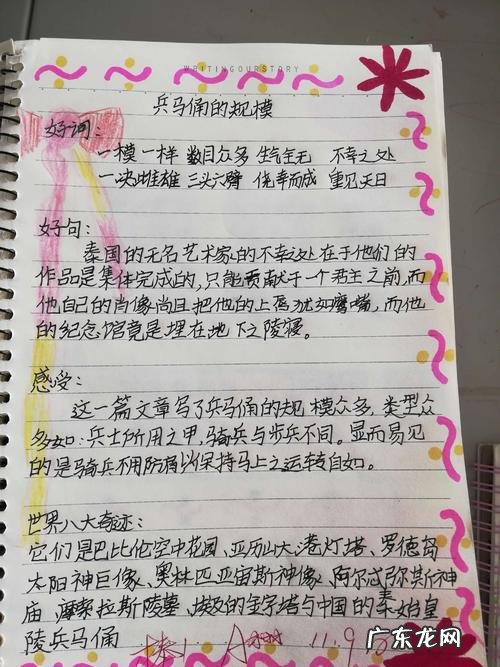 WRITINGOURSTORY
兵马俑的规模
好词：
一模一样 数目众多 生气全无 不幸之处
一决雌雄 三头六臂 侥幸而成 重见天日
好句：
秦国的无名艺术家的不幸之处在于他们的
作品是集体完成的，只能贡献于一个君主之前，而
他自己的肖像尚且把他的上唇犹如磨嘴，而他
的纪念馆竟是埋在地下之陵寝。
感受：
这一篇文章写了兵马俑的规模众多，类型众
多如：兵士所用之甲，骑兵与步兵不同。显而易见
的是骑兵不用防盾以保持马上之运转自如。
世界八大奇迹：
它们是巴比伦空中花园、亚历山大港灯塔、罗德岛
太阳神巨像、奥林匹亚宙斯神像、阿尔忒弥斯神
庙、摩索拉斯陵墓、埃及的金字塔与中国的秦始皇
陵兵马俑
11.9
广东龙网